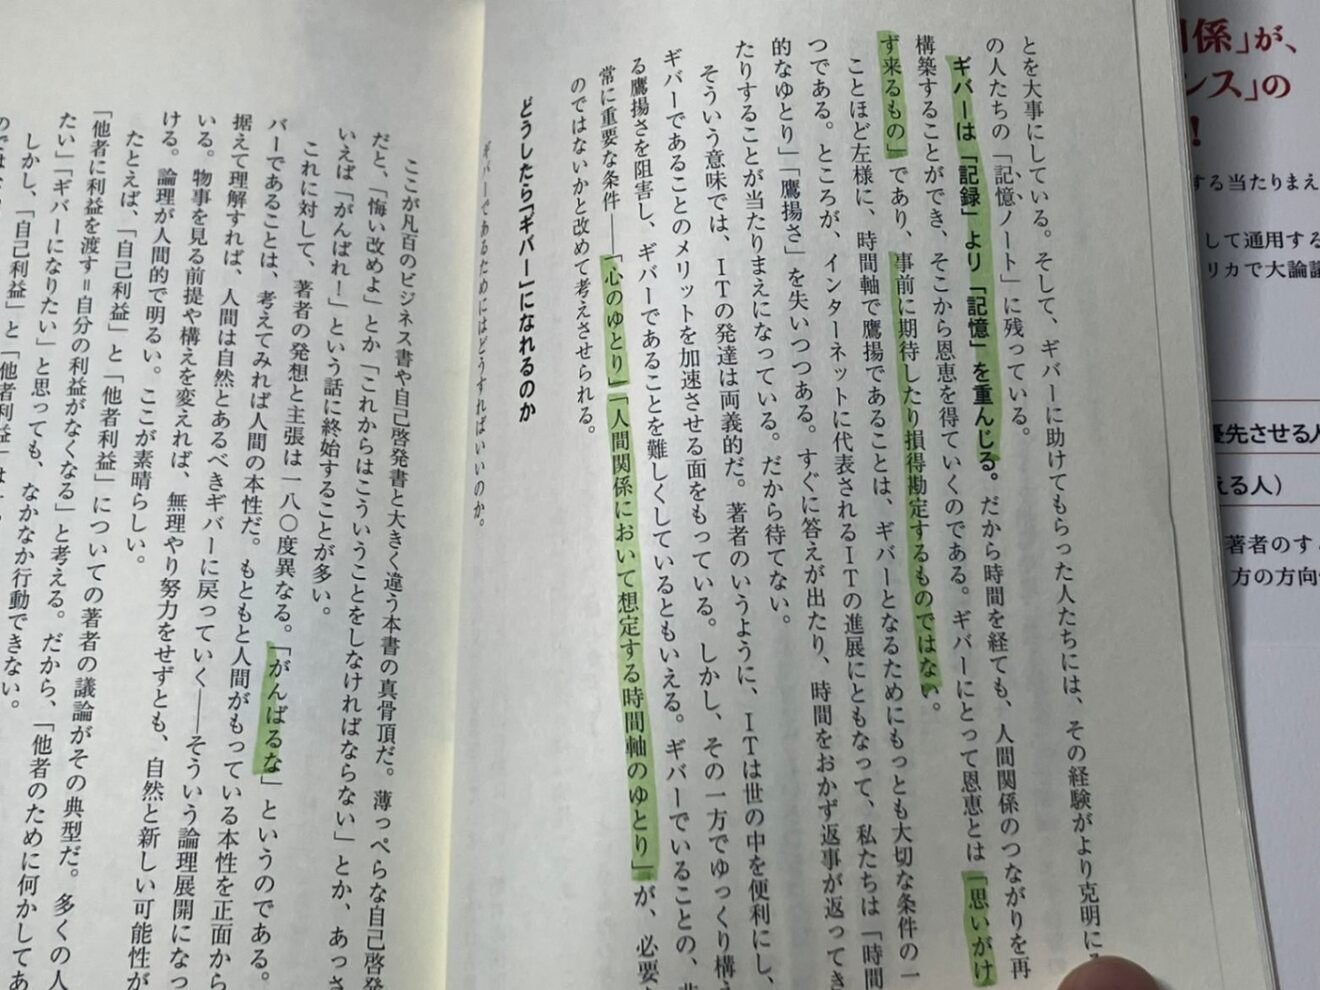 とを大事にしている。そして、ギバーに助けてもらった人たちには、その経験がより克明に
の人たちの「記憶ノート」に残っている。
ギバーは「記録」より「記憶」を重んじる。だから時間を経ても、人間関係のつながりを再
構築することができ、そこから恩恵を得ていくのである。ギバーにとって恩恵とは「思いがけ
ず来るもの」であり、事前に期待したり損得勘定するものではない。
ことほど左様に、時間軸で鷹揚であることは、ギバーとなるためにもっとも大切な条件の一
つである。ところが、インターネットに代表されるITの進展にともなって、私たちは「時間
的なゆとり」「鷹揚さ」を失いつつある。すぐに答えが出たり、時間をおかず返事が返ってき
たりすることが当たりまえになっている。だから待てない。
そういう意味では、ITの発達は両義的だ。著者のいうように、ITは世の中を便利にし、
ギバーであることのメリットを加速させる面をもっている。しかし、その一方でゆっくり構え
る鷹揚さを阻害し、ギバーであることを難しくしているともいえる。ギバーでいることの、非
常に重要な条件――「心のゆとり」「人間関係において想定する時間軸のゆとり」が、必要
のではないかと改めて考えさせられる。
どうしたら「ギバー」になれるのか
ギバーであるためにはどうすればいいのか。
ここが凡百のビジネス書や自己啓発書と大きく違う本書の真骨頂だ。薄っぺらな自己啓発
だと、「悔い改めよ」とか「これからはこういうことをしなければならない」とか、あっさ
いえば「がんばれ！」という話に終始することが多い。
これに対して、著者の発想と主張は一八〇度異なる。「がんばるな」というのである。
バーであることは、考えてみれば人間の本性だ。もともと人間がもっている本性を正面から
据えて理解すれば、人間は自然とあるべきギバーに戻っていく――そういう論理展開になっ
いる。物事を見る前提や構えを変えれば、無理やり努力をせずとも、自然と新しい可能性が
ける。論理が人間的で明るい。ここが素晴らしい。
たとえば、「自己利益」と「他者利益」についての著者の議論がその典型だ。多くの人
「他者に利益を渡す＝自分の利益がなくなる」と考える。だから、「他者のために何かしてあ
たい」「ギバーになりたい」と思っても、なかなか行動できない。
しかし、「自己利益」と「他者利益」は
係」が、
ンス」の
！
する当たりまえ
して通用する
リカで大論議
優先させる人
える人）
著者のす
方の方向